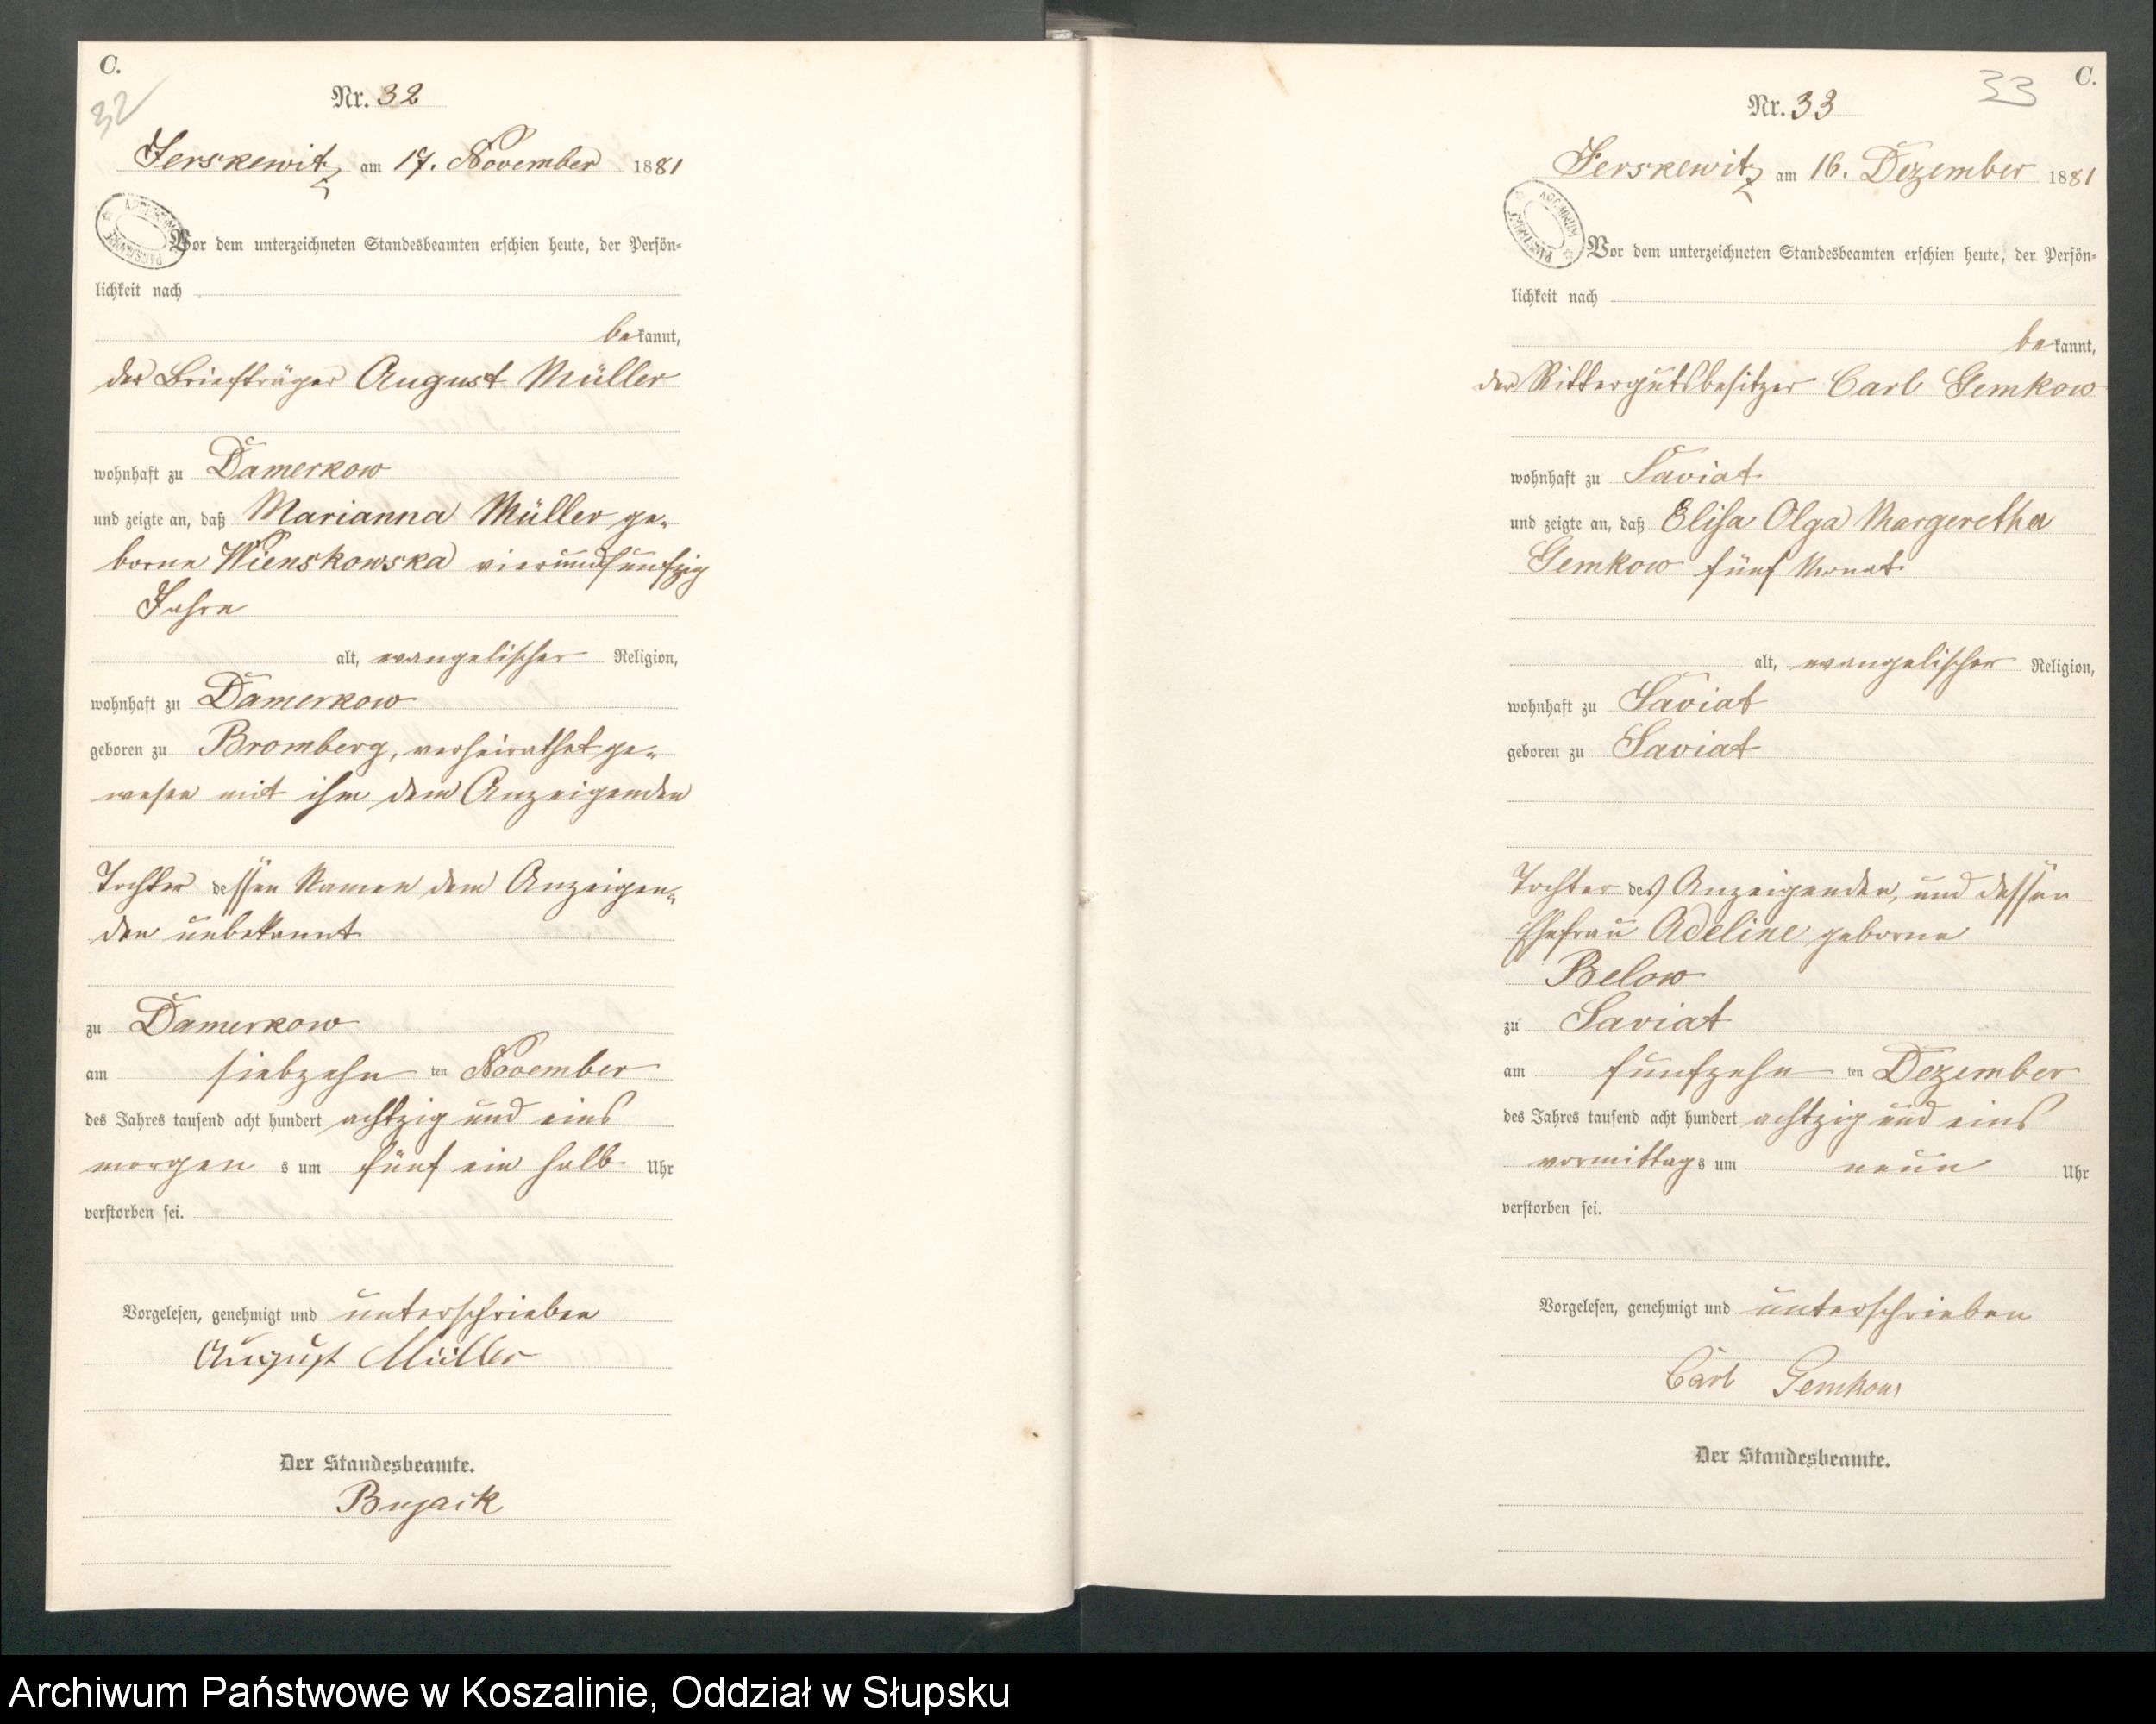 C.
32
Nr. 32
Jerskewitz am 17. November 1881
Vor dem unterzeichneten Standesbeamten erschien heute, der Persön=
lichkeit nach
bekannt,
der Briefträger August Müller
wohnhaft zu Damerkow
und zeigte an, daß Marianna Müller ge=
borne Wienskowska vierundfünfzig
Jahre
alt, evangelischer Religion,
wohnhaft zu Damerkow
geboren zu Bromberg, verheirathet ge=
wesen mit ihm dem Anzeigenden
Tochter dessen Namen dem Anzeigen=
den unbekannt
zu Damerkow
am siebzehn ten November
des Jahres tausend acht hundert achtzig und eins
morgen s um fünf ein halb Uhr
verstorben sei.
Vorgelesen, genehmigt und unterschrieben
August Müller
Der Standesbeamte.
Bujack
C.
33
Nr. 33
Jerskewitz am 16. Dezember 1881
Vor dem unterzeichneten Standesbeamten erschien heute, der Persön=
lichkeit nach
bekannt,
der Rittergutsbesitzer Carl Gemkow
wohnhaft zu Saviat
und zeigte an, daß Elisa Olga Margeretha
Gemkow fünf Monat
alt, evangelischer Religion,
wohnhaft zu Saviat
geboren zu Saviat
Tochter des Anzeigenden, und dessen
Ehefrau Adeline geborne
Below
zu Saviat
am fünfzehn ten Dezember
des Jahres tausend acht hundert achtzig und eins
vormittags um neun Uhr
verstorben sei.
Vorgelesen, genehmigt und unterschrieben
Carl Gemkow
Der Standesbeamte.
Archiwum Państwowe w Koszalinie, Oddział w Słupsku